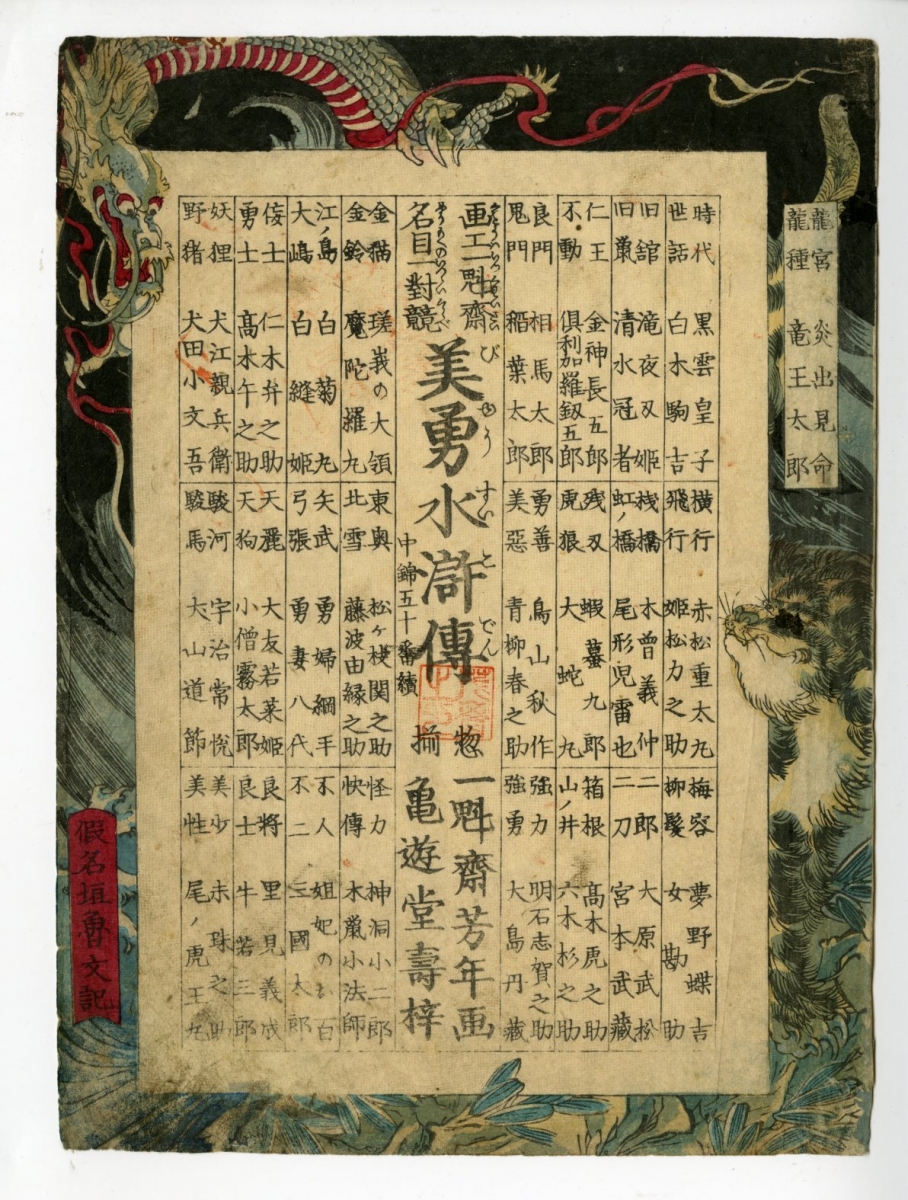 龍宮 炎出見命
龍種 竜王太郎
時代 黒雲皇子 横行 赤松重太丸 梅容 夢野蝶吉
世話 白木駒吉 飛行 姫松力之助 柳髪 女勘助
旧舘 滝夜叉姫 桟橋 木曽義仲 二郎 大原武松
旧巣 清水冠者 虹ノ橋 尾形児雷也 二刀 宮本武蔵
仁王 金神長五郎 残叉 蝦蟇九郎 箱根 高木虎之助
不動 倶利加羅釼五郎 虎狼 大蛇丸 山ノ井 六木杉之助
良門 相馬太郎 勇善 鳥山秋作 強力 明石志賀之助
鬼門 稲葉太郎 美惡 青柳春之助 強勇 大島丹藏
画工一魁齋
名目一對競
美勇水滸傳
びゆうすいこでん
中錦五十番續
惣揃
一魁齋芳年画
亀遊堂壽梓
金猫 瑳峩の大領 東奥 松ヶ枝関之助 怪力 神洞小二郎
金鈴 魔陀羅丸 北雪 藤波由縁之助 快傳 木鼠小法師
江ノ島 白菊丸 矢武 勇婦綱手 不人 妲妃のお百
大嶋 白縫姫 弓張 勇妻八代 不二 三國太郎
侫士 仁木弁之助 天麗 大友若菜姫 良將 里見義成
勇士 高木午之助 天狗 小僧霧太郎 良士 牛若三郎
妖狸 犬江親兵衛 駿河 宇治常悦 美少 朱珠之助
野猪 犬田小文吾 駿馬 犬山道節 美性 尾ノ虎王丸
假名垣魯文記